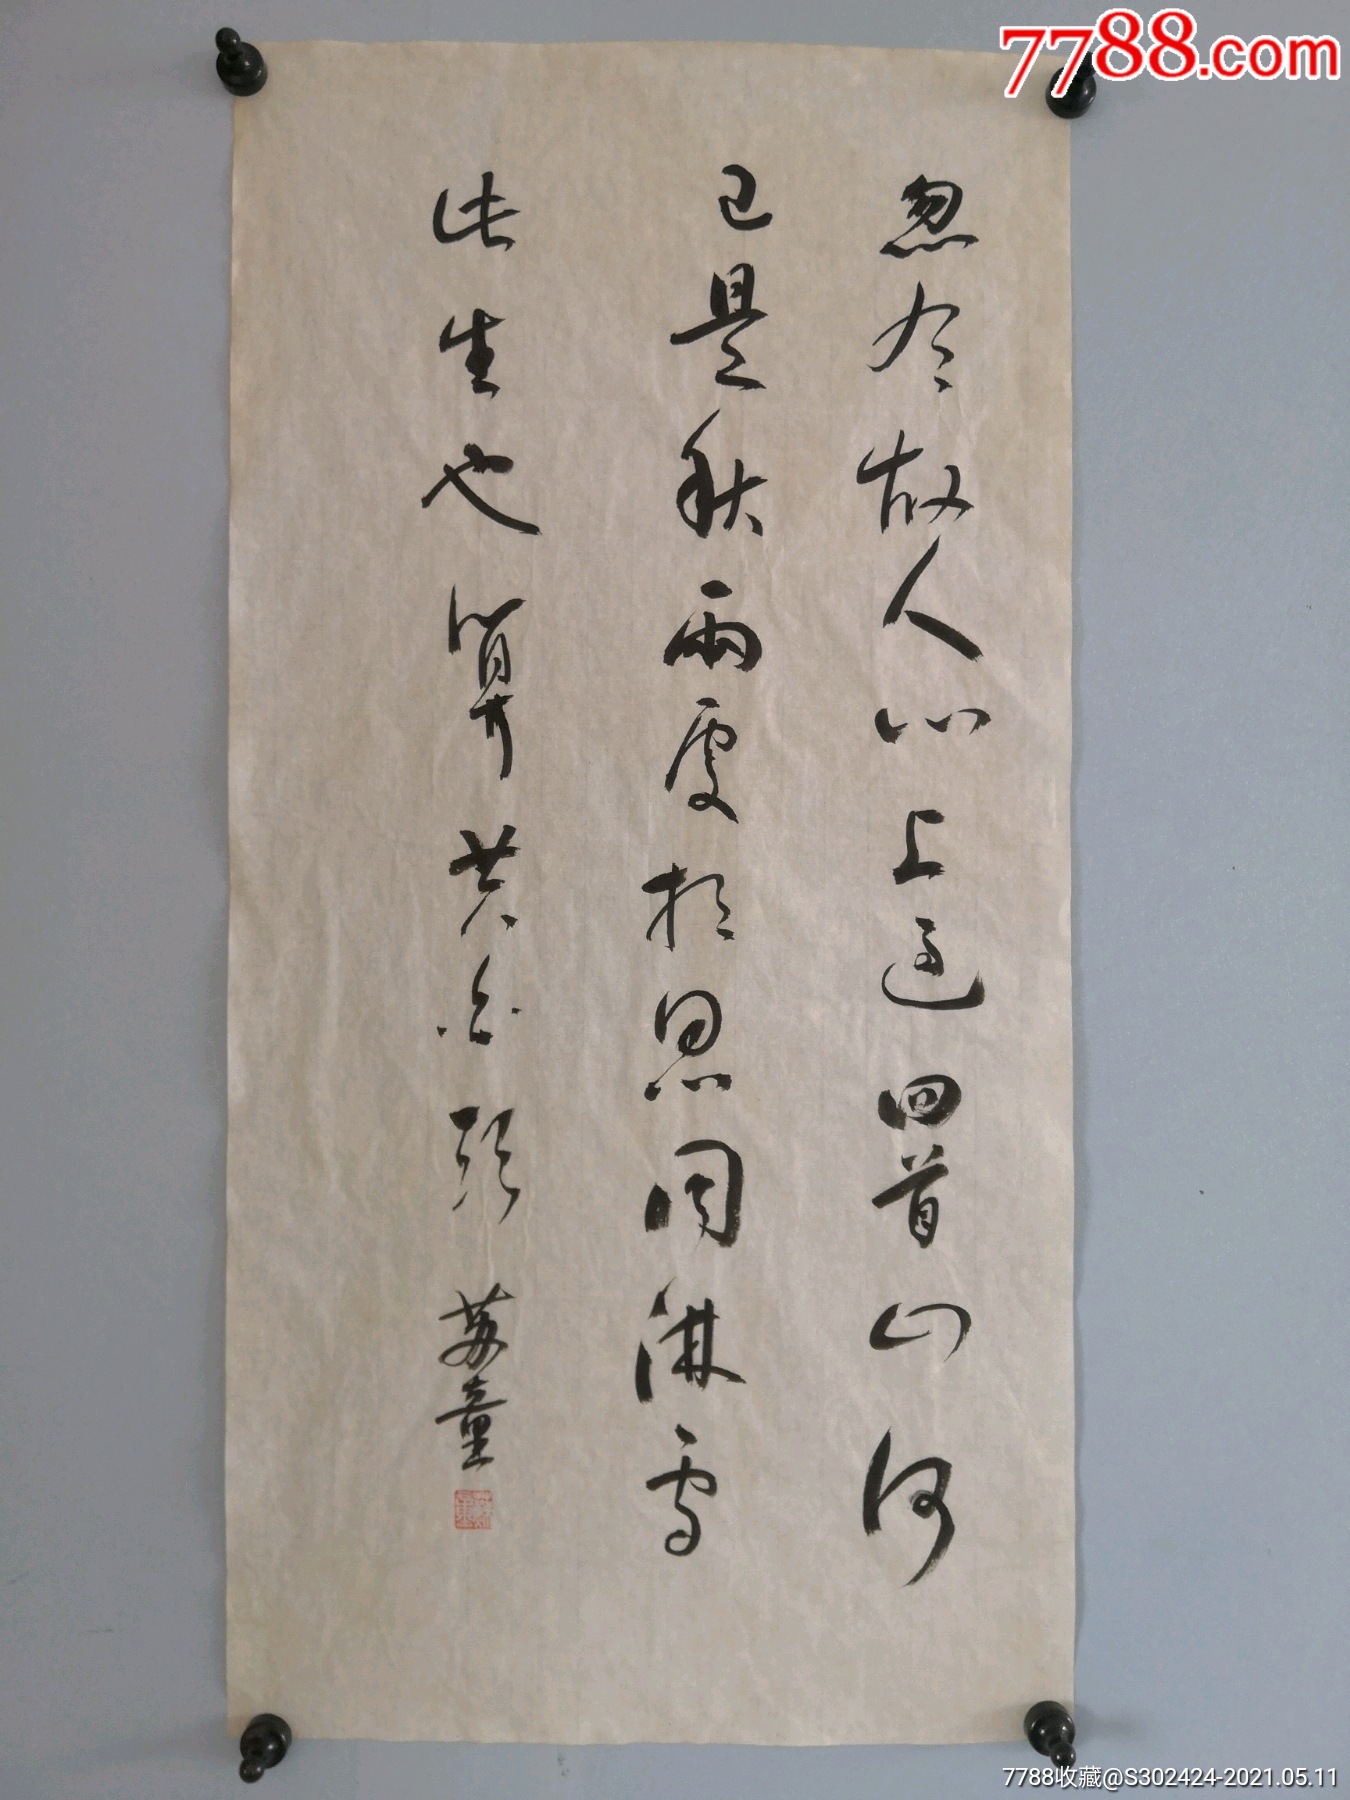 忽有故人心上过回首山河
已是秋两处相思同淋雪
此生也算共白头 苏童
7788.com
7788收藏@S302424-2021.05.11